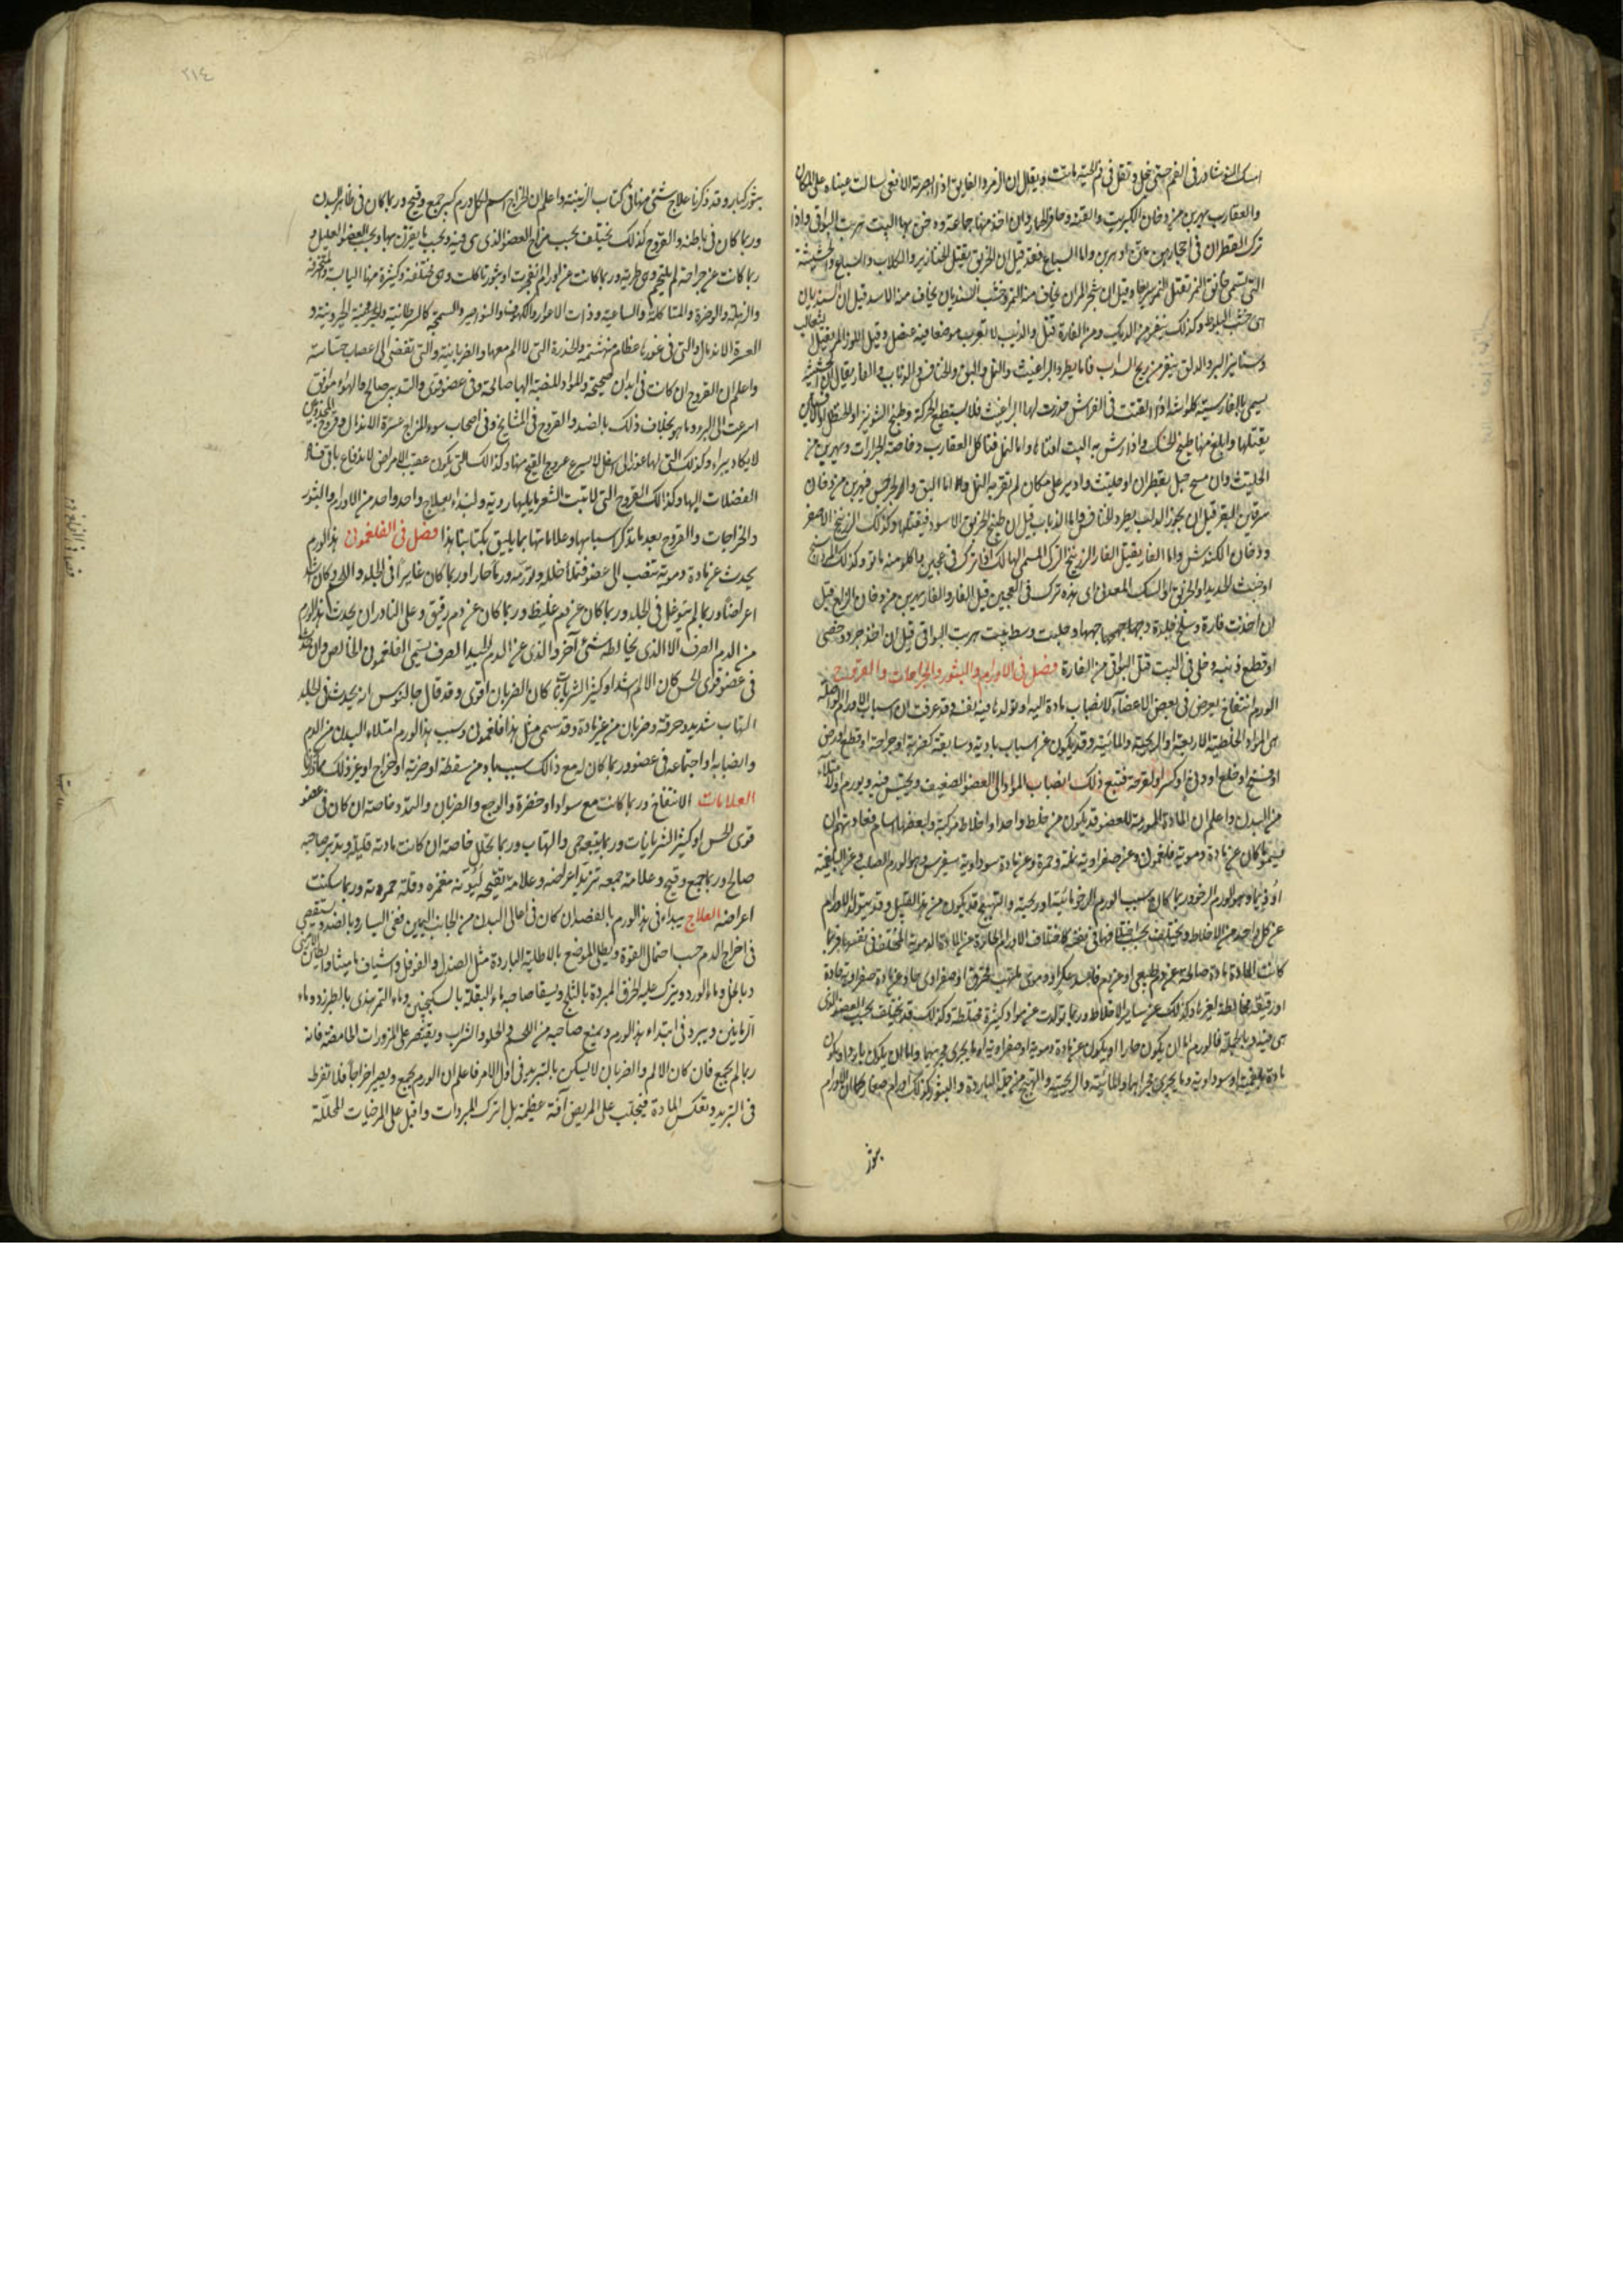 امسك النوشادر فى الفم حتى ينحل وتفل فى فم الحية ماتت ويقال ان الزمرد الفايق اذا ابصرته الافعى سالت عيناه على المكان
والعقارب يهربن من دخان الكبريت والقنة وحافر الحمار وان اخذ منها جماعة ودخن بها البيت هربت البواقى واذا
ترك القطران فى احجارهن متن او هربن واما السباع فقد قيل ان الخربق يقتل الخنازير والكلاب والضباع والحشيشة
التى تسمى خانق النمر تقتل النمور سريعا وقيل ان شجر المران يخاف منه النمر وخشب السنديان يخاف منه الاسد قيل ان السنديان
هى خشب البلوط وكذلك ينفر من الديك ومن الفارة قيل والذئب لا يقرب موضعا فيه عنصل وقيل اللوز المر يقتل الثعالب
وسنانير البر والدلق ينفر من ريح السداب فاما ما يطرد البراغيث والنمل والبق والخنافس والذباب والفار يقال ان الحشيشة
يسمى بالفارسية كلواشه اذا القيت فى الفراش خدرت لها البراغيث فلا يستطيع الحركة وطبيخ الشونيز او الحنظل
يقتلها وابلغ منها طبيخ الحسك واذا رش به البيت افناها واما النمل فتاكل العقارب وخاصة الجرارات ويهربن من
الحلتيث وان مسح حبل بقطران او حلتيث وادير على مكان لم تقربه النمل واما البق والجرجس فيهربن من دخان
سرقين البقر قيل ان بخور الدلب يطرد الخنافس واما الذباب قيل ان طبيخ الخربق الاسود يقتلها وكذلك الزرنيخ الاصفر
ودخان الكندش واما الفار يقتل الفار الزرنيخ المسمى الهالك اذا ترك فى عجين واكلو منه ماتو وكذلك
او خبث الحديد او الخربق او السك المعدنى اى هذه ترك فى العجين قتل الفار والفار يهربن من دخان الزاج قيل
ان اخذت فارة وسلخ جلدة وجهها وخليت وسط بيت هربت البواقى قيل ان اخذ جرد وخصى
او قطع ذنبه وخلى فى البيت قتل البواقى من الفارة فصل فى الاورام والبثور والجراحات والقروح
الورم انتفاخ يعرض فى بعض الاعضآء لانصباب مادة اليه او تولدها فيه نفسه وقد عرفت ان اسباب الاورام
هى المواد الخلطية الاربعة او الريحية والمائية وقد يكون عن اسباب بادية وسابقة كضربة او جراحة او قطع او رض
او فسخ او خلع او وثى او كسر او لقرحة فتتبع ذلك انصباب المواد الى العضو الضعيف ويحتبس فيه ويورم
من البدن واعلم ان المادة المورمة للعضو قد يكون من خلط واحد او اخلاط مركبة ولبعضها اسام
فيسمى ما كان عن مادة دموية فلغمونى وعن صفراوية نملة وحمرة وعن مادة سوداوية سقيروس وهو الورم الصلب وعن البلغمية
اوذيما وهو الورم الرخو وربما كان سبب الورم الرخو مائية او ريحية والتهبج قد يكون من هذا القبيل وقد يتولد الاورام
عن كل واحد من الاخلاط ويختلف بحسب
كانت المادة مادة صالحة عن دم طبيعى او عن دم فاسد
او رقيقة مخالطة لغيرها وكذلك عن ساير الاخلاط وربما تولدت عن مواد كثيرة مختلطة وكذلك قد يختلف بحسب العضو الذى
هى فيه وبالجملة فالورم اما ان يكون حارا او يكون عن مادة دموية او صفراوية او ما يجرى مجريهما واما ان يكون باردا ويكون
مادة بلغمية او سوداوية وما يجرى مجراهما والمائية والريحية والتهبج من جملة الباردة والبثور كذلك اورام صغار كما ان الاورام
بثور
٢١٤
بثور كبار وقد ذكرنا علاج شئ منها فى كتاب الزينة واعلم ان الخراج اسم لكل ورم كبير جمع وقيح وربما كان فى ظاهر البدن
وربما كان فى باطنه والقروح كذلك يختلف بحسب مزاج العضو الذى هى فيه وبحسب ما يقترن بها وبحسب العضو العليل و
ربما كانت عن جراحة لم يلتحم وهى طرية وربما كانت عن اورام انفجرت او بثور تاكلت وهى مختلفة وكثيرة منها اليابسة
والرهلة والوضرة والمتاكلة والساعية وذات الاغوار والكهوف والنواصير والسمجة كالسرطانية والخيرونية و
العسرة الاندمال والتى فى غورها عظام متهشمة والخدرة التى لا الم معها والضربانية والتى تفضى الى اعصاب حساسة
واعلم ان القروح ان كانت فى ابدان صحيحة والمواد المنصبة اليها صالحة وفى عضو قوى والتدبير صالح والهواء موافق
اسرعت الى البرء وما هو بخلاف ذلك بالضد والقروح فى المشايخ وفى اصحاب سوء المزاج عسرة الاندمال وقروح المجذومين
لا يكاد يبراء وكذلك التى لها غور الى اسفل لا يسرع خروج القيح منها وكذالك التى يكون عقيب الامراض لاندفاع باقى
الفضلات اليها وكذالك القروح التى لا تنبت الشعر ما يليها ردية ولنبداء بعلاج واحد واحد من الاورام والبثور
والخراجات والقروح بعد ما نذكر اسبابها وعلاماتها بما يليق بكتابنا هذا فصل فى الفلغمونى هذا الورم
يحدث عن مادة دموية تنصب الى عضو فتملأ خلله وتورمه ورما حارا وربما كان غايرا فى الجلد واللحم وكان اشد
اعراضا وربما لم يتوغل فى الجلد وربما كان عن دم غليظ وربما كان عن دم رقيق وعلى النادر ان يحدث هذا الورم
من الدم الصرف الا الذى يخالطه شئ آخر والذى عن الدم الجيد الصرف يسمى الفلغمونى الخالص وان حدث
فى عضو قوى الحس كان الالم اشد او كثير الشريانات كان الضربان اقوى وقد قال جالنوس انه يحدث فى الجلد
التهاب شديد وحرقة وضربان من غير مادة وقد يسمى مثل هذا فلغمونى وسبب هذا الورم امتلاء البدن من الدم
وانصبابه او اجتماعه فى عضو وربما كان له مع ذالك سبب باد من سقطة او ضربة او خراج او غير ذلك مما ذكرنا
العلامات الانتفاخ وربما كانت مع سواد او خضرة والوجع والضربان والتمدد وخاصة ان كان فى عضو
قوى الحس او كثير الشريانات وربما يتبعه حمى والتهاب وربما تحلل خاصة ان كانت مادته قليلة وتدبير صاحبه
صالح وربما جمع وقيح وعلامة جمعه تزيد اعراضه وعلامة تقيحه ليونة مغمزه وقلة حمرته وربما سكنت
اعراضه العلاج يبداء فى هذا الورم بالفصد ان كان فى اعالى البدن من الجانب اليمين ففى اليسار وبالضد ويستقصى
فى اخراج الدم حسب احتمال القوة ويطلى الموضع بالاطلية الباردة مثل الصندل والفوفل واشياف ماميثا والطين الارمنى
وبالخل وماء الورد ويترك عليه الخرق المبردة بالثلج ويسقا صاحبه ماء البقلة بالسكنجبين وماء التمر هندى بالطبرزد وماء
الرمانين ويبرد فى ابتداء هذا الورم ويمنع صاحبه من اللحم والحلو والشراب ويقتصر على المزورات الحامضة فانه
ربما لم يجمع فان كان الالم والضربان لا يسكن بالتبريد فى اول الامر فاعلم ان الورم يجمع ويصير خراجا فلا تفرط
فى التبريد وتعكس المادة فيجلب على المريض آفة عظيمة بل اترك المبردات واقبل على المرخيات المحللة